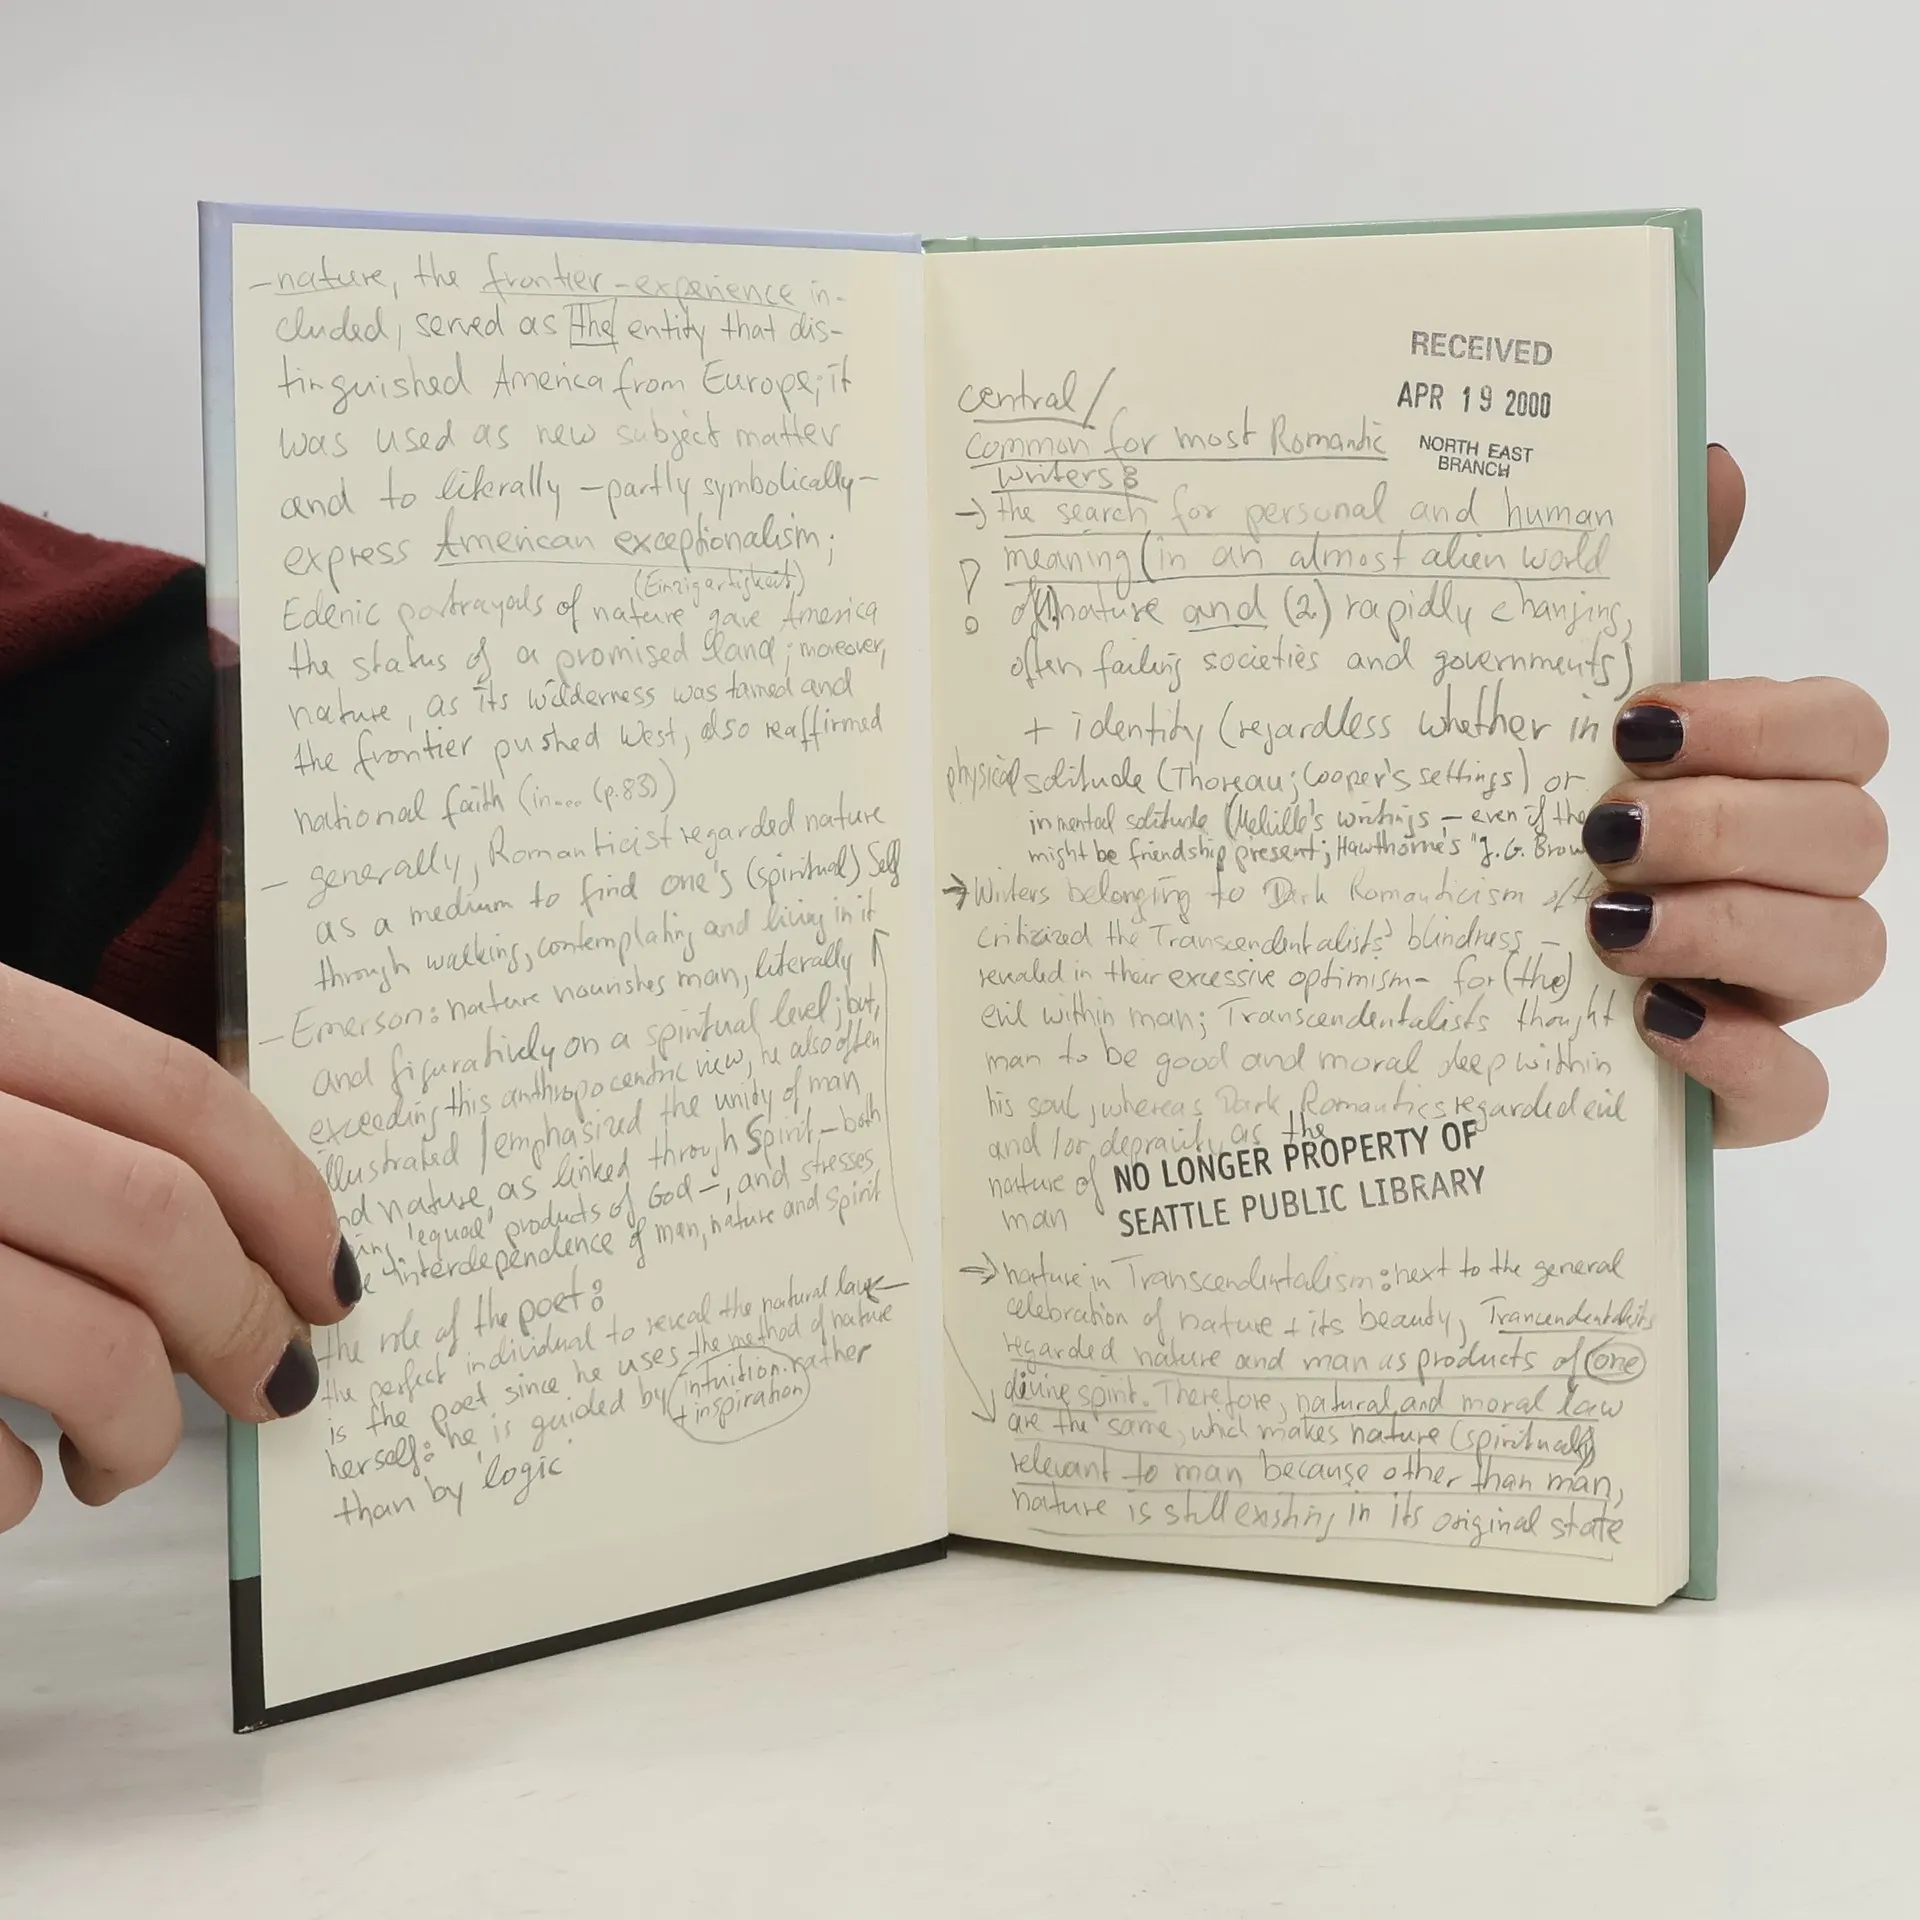 – nature, the frontier-experience in-
cluded, served as the entity that dis-
tinguished America from Europe; it
was used as new subject matter
and to literally – partly symbolically –
express American exceptionalism;
(Einzigartigkeit)
Edenic portrayals of nature gave America
the status of a promised land; moreover,
nature, as its wilderness was tamed and
the frontier pushed West, also reaffirmed
national faith (in... (p.83))
– generally, Romanticist regarded nature
as a medium to find one's (spiritual) Self
through walking, contemplating and living in it
– Emerson: nature nourishes man, literally
and figuratively on a spiritual level; but,
exceeding this anthropocentric view, he also often
illustrated / emphasized the unity of man
nature, as linked through Spirit – both
'equal' products of God –, and stresses
interdependence of man, nature and Spirit
the role of the poet:
the perfect individual to reveal the natural law
is the poet since he uses the method of nature
herself: he is guided by intuition rather
+ inspiration
than by logic
RECEIVED
APR 19 2000
NORTH EAST
BRANCH
central/
common for most Romantic
writers:
→ the search for personal and human
meaning (in an almost alien world
of (1.) nature and (2.) rapidly changing,
often failing societies and governments)
+ identity (regardless whether in
physical solitude (Thoreau; Cooper's settings) or
in mental solitude (Melville's writings – even if the
might be friendship present; Hawthorne's "Y. G. Brow
→ Writers belonging to Dark Romanticism
criticized the Transcendentalists' blindness –
revealed in their excessive optimism – for (the)
evil within man; Transcendentalists thought
man to be good and moral deep within
his soul, whereas Dark Romantics regarded evil
and/or depravity as the
nature of
man
NO LONGER PROPERTY OF
SEATTLE PUBLIC LIBRARY
→ nature in Transcendentalism: next to the general
celebration of nature + its beauty, Trancendentalists
regarded nature and man as products of one
divine spirit. Therefore, natural and moral law
are the same, which makes nature (spiritually)
relevant to man because other than man,
nature is still existing in its original state